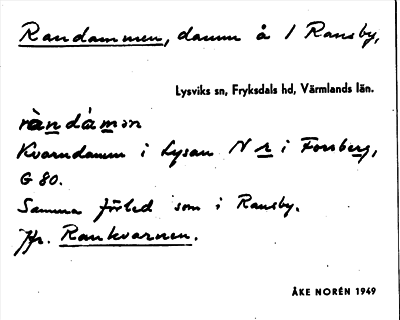 Randammen, damm å 1 Ransby,
Lysviks sn, Fryksdals hd, Värmlands län.
ràndámən
Kvarndamm i Lysan N r i Forsberg,
G 80.
Samma förled som i Ransby.
Jfr. Rankvarnen.
ÅKE NORÉN 1949